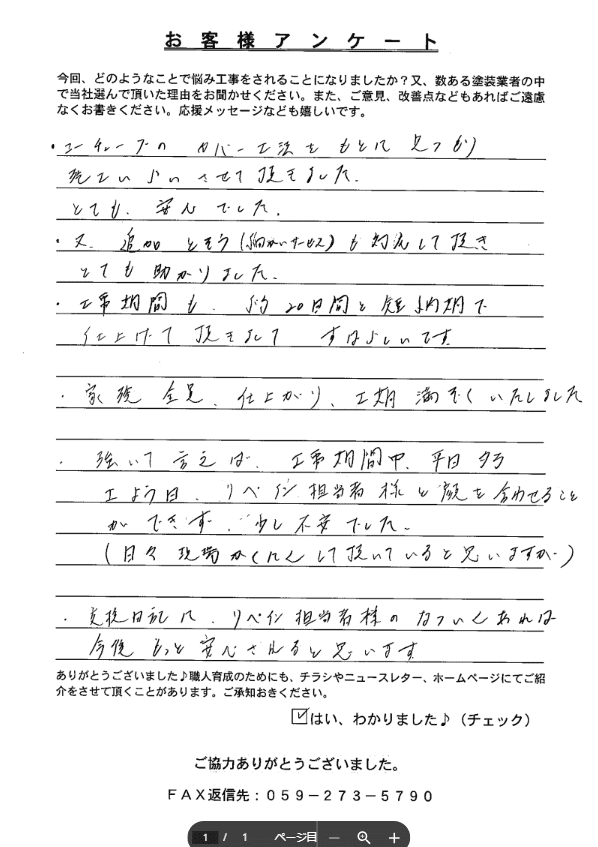 お客様アンケート
今回、どのようなことで悩み工事をされることになりましたか？又、数ある塗装業者の中
で当社選んで頂いた理由をお聞かせください。また、ご意見、改善点などもあればご遠慮
なくお書きください。応援メッセージなども嬉しいです。
・ユーチューブの カバー工法をもとに 見つかり
施工 させて頂きました。
とても、安心でした。
・又、追加 とそう（細かいサービス）も対応して頂き
とても助かりました。
・工事期間も、約20日間と短納期で
仕上げて頂きまして すばらしいです
・家族全員、仕上がり、工期 満ぞくいたしました
・強いて言えば、工事期間中、平日 夕方
土よう日、リペイン担当者様と顔を合わせること
ができず、少し不安でした。
（日々 現場かくにんして頂いていると思いますが）
・交換日記に、リペイン担当者様のなついんあれば
今後もっと安心されると思います
ありがとうございました♪職人育成のためにも、チラシやニュースレター、ホームページにてご紹
介をさせて頂くことがあります。ご承知おきください。
☑はい、わかりました♪（チェック）
ご協力ありがとうございました。
ＦＡＸ返信先：０５９－２７３－５７９０
1 / 1 ページ目 － ＋